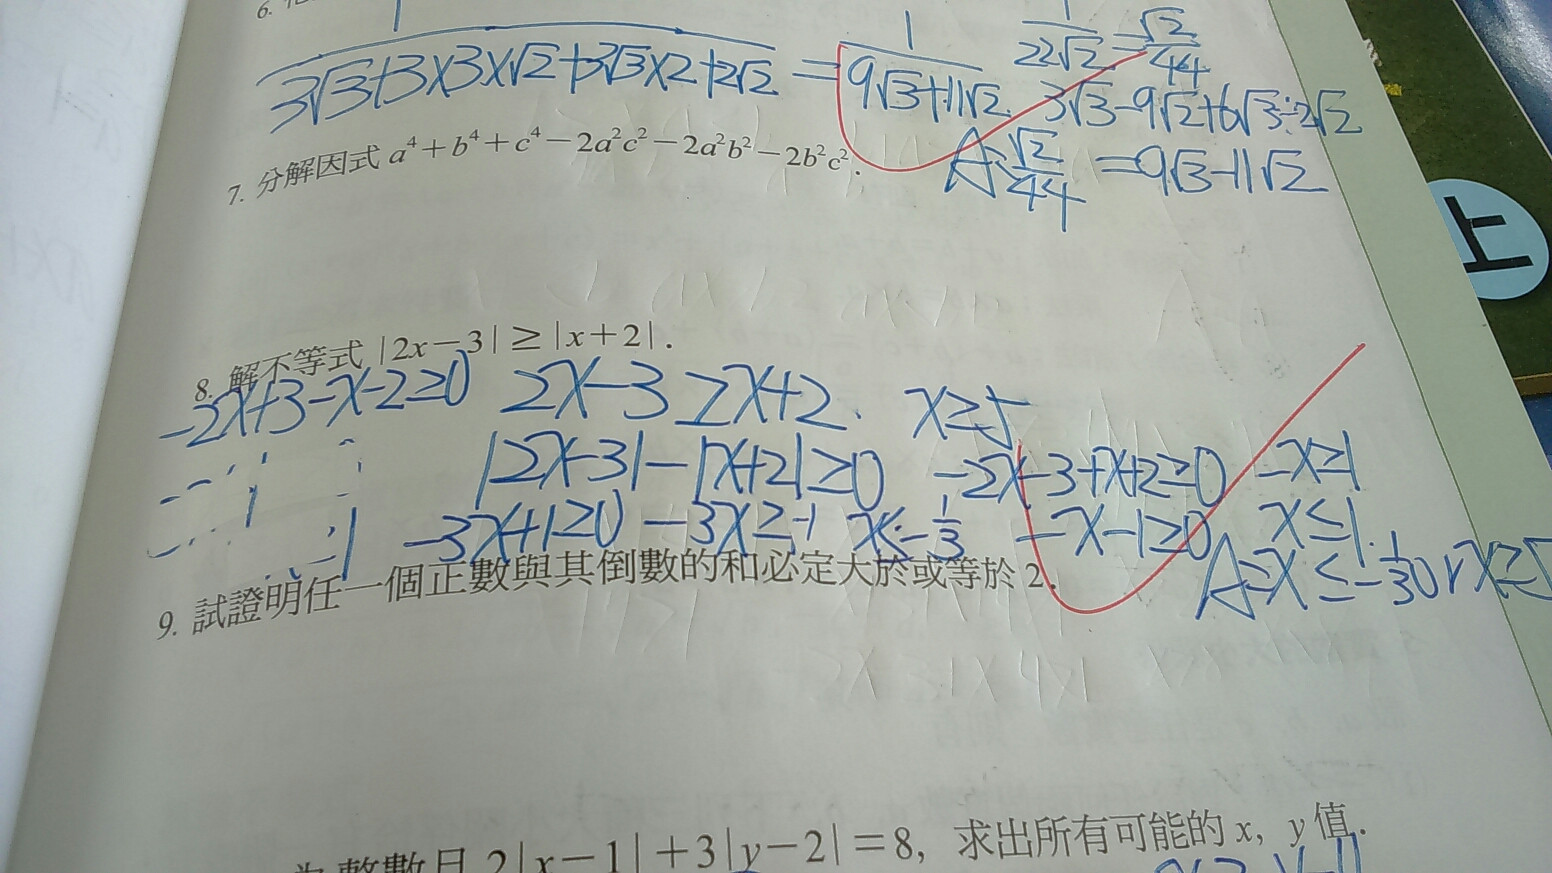 6.
1
3√3+3×3×√2+3√3×2+2√2 = 1/(9√3+11√2)
1/(22√2) = √2/44
3√3-9√2+6√3-2√2
A: √2/44 =9√3-11√2
7. 分解因式 a⁴+b⁴+c⁴-2a²c²-2a²b²-2b²c².
上
8. 解不等式 |2x-3|≥|x+2|.
-2x+3-x-2≥0 2x-3≥x+2. x≥5
|2x-3|-|x+2|≥0 -2x-3+x+2≥0 -x≥1
-3x+1≥0 -3x≥-1 x≤-1/3 -x-1≥0 x≤1.
A=x≤-1/3 or x≥5
9. 試證明任一個正數與其倒數的和必定大於或等於 2.
為整數且 2|x-1|+3|y-2|=8, 求出所有可能的 x, y 值.